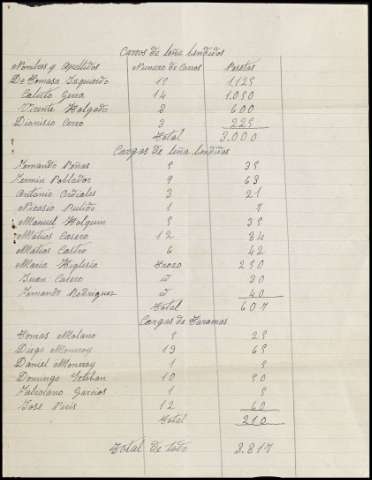 Carros de leña bendidos
Nombres y Apellidos Numero de Carros Pesetas
Dn Tomaso Izquierdo 15 1.125
Calisto Gena 14 1.050
Vicente Holgado 8 600
Dionisio Cerro 3 225
Total 3.000
Cargas de leña bendidas
Fernando Peñas 5 35
Fermin Poblador 9 63
Antonio 3 21
Nicasio 1 7
Manuel Holguin 5 35
Matias Casero 12 84
Matias Castro 6 42
Maria Yglesia trozo 250
Juan Casero id 30
Fernando Rodriguez id 40
Total 607
Cargas de Taramas
Tomas Molano 5 25
Diego Monrroy 13 65
Daniel Monrroy 1 5
Domingo Esteban 10 50
Garcias 1 5
Jose 12 60
Total 210
Total de todo 3.817